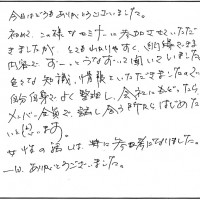 今日はどうもありがとうございました。
初めて、この様なセミナーに参加させていただ
きましたが、とてもわかりやすく、納得できる
内容で、ずーっとうなずいて聞いていました。
色々な知識、情報をいただきましたので
自分自身でよく整理し、会社にもどったら
メンバー全員で、話し合う所からはじめた
いと思います。
女性の話しは、特に参考になりました。
ありがとうございました。